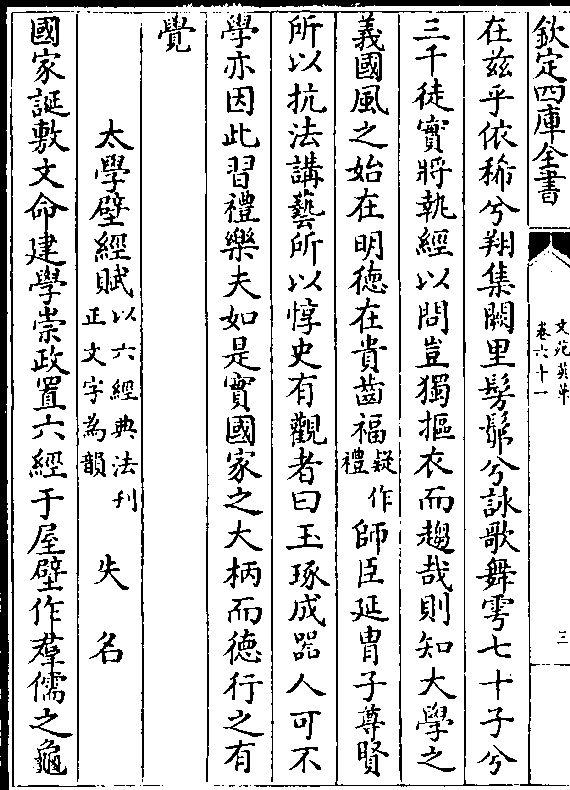 欽定四庫全書
文苑英華
卷六十一
三
在兹乎依稀兮翔集闕里髣髴兮詠歌舞雩七十子兮
三千徒實將執經以問豈獨摳衣而趨哉則知大學之
義國風之始在明德在貴齒福疑作禮師臣延胄子尊賢
所以抗法講藝所以惇史有觀者曰玉琢成器人可不
學亦因此習禮樂夫如是實國家之大柄而德行之有
覺
太學壁經賦以六經典法刋正文字為韻 失名
國家誕敷文命建學崇政置六經于屋壁作羣儒之龜